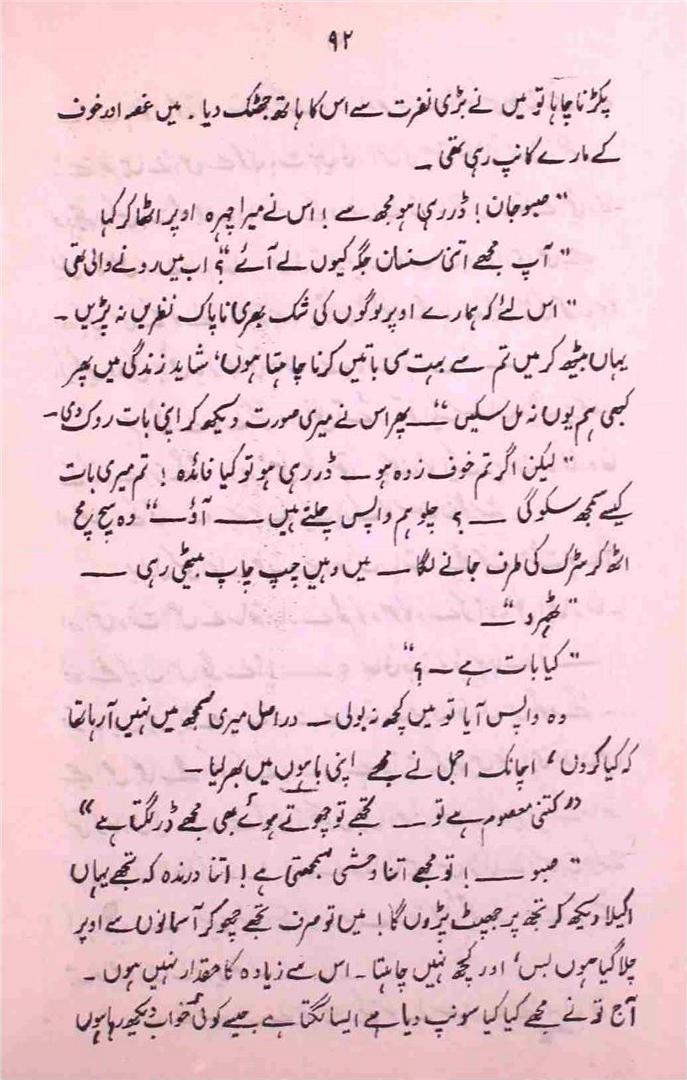 ۹۲
پکڑنا چاہا تو میں نے بڑی نفرت سے اس کا ہاتھ جھٹک دیا۔ میں غصہ اور خوف
کے مارے کانپ رہی تھی۔
"صبو جان! ڈر رہی ہو مجھ سے! اس نے میرا چہرہ اوپر اٹھا کر کہا
"آپ مجھے اتنی سنسان جگہ کیوں لے آئے "؟ اب میں رونے والی تھی
"اس لئے کہ ہمارے اوپر لوگوں کی شک بھری ناپاک نظریں نہ پڑیں۔
یہاں بیٹھ کر میں تم سے بہت سی باتیں کرنا چاہتا ہوں، شاید زندگی میں پھر
کبھی ہم یوں نہ مل سکیں"۔ پھر اس نے میری صورت دیکھ کر اپنی بات روک دی۔
"لیکن اگر تم خوف زدہ ہو ـــ ڈر رہی ہو تو کیا فائدہ! تم میری بات
کیسے سمجھ سکو گی ـــ؟ چلو ہم واپس چلتے ہیں ـــ آؤ ـــ" وہ سچ مچ
اٹھ کر سڑک کی طرف جانے لگا ـــ میں وہیں چپ چاپ بیٹھی رہی ـــ
"ٹھہرو"ـــ
"کیا بات ہے ـ؟"
وہ واپس آیا تو میں کچھ نہ بولی ـــ دراصل میری سمجھ میں نہیں آ رہا تھا
کہ کیا کروں، اچانک اجمل نے مجھے اپنی باہوں میں بھر لیا۔
"کتنی معصوم ہے تو ـــ تجھے تو چھوتے ہوئے بھی مجھے ڈر لگتا ہے"
"صبو ـــ! تو مجھے اتنا وحشی سمجھتی ہے! اتنا درندہ کہ تجھے یہاں
اکیلا دیکھ کر تجھ پر جھپٹ پڑوں گا! میں تو صرف تجھے چھو کر آسمانوں سے اوپر
چلا گیا ہوں بس، اور کچھ نہیں چاہتا۔ اس سے زیادہ کا حقدار نہیں ہوں۔
آج تو نے مجھے کیا کیا سونپ دیا ہے ایسا لگتا ہے جیسے کوئی خواب دیکھ رہا ہوں